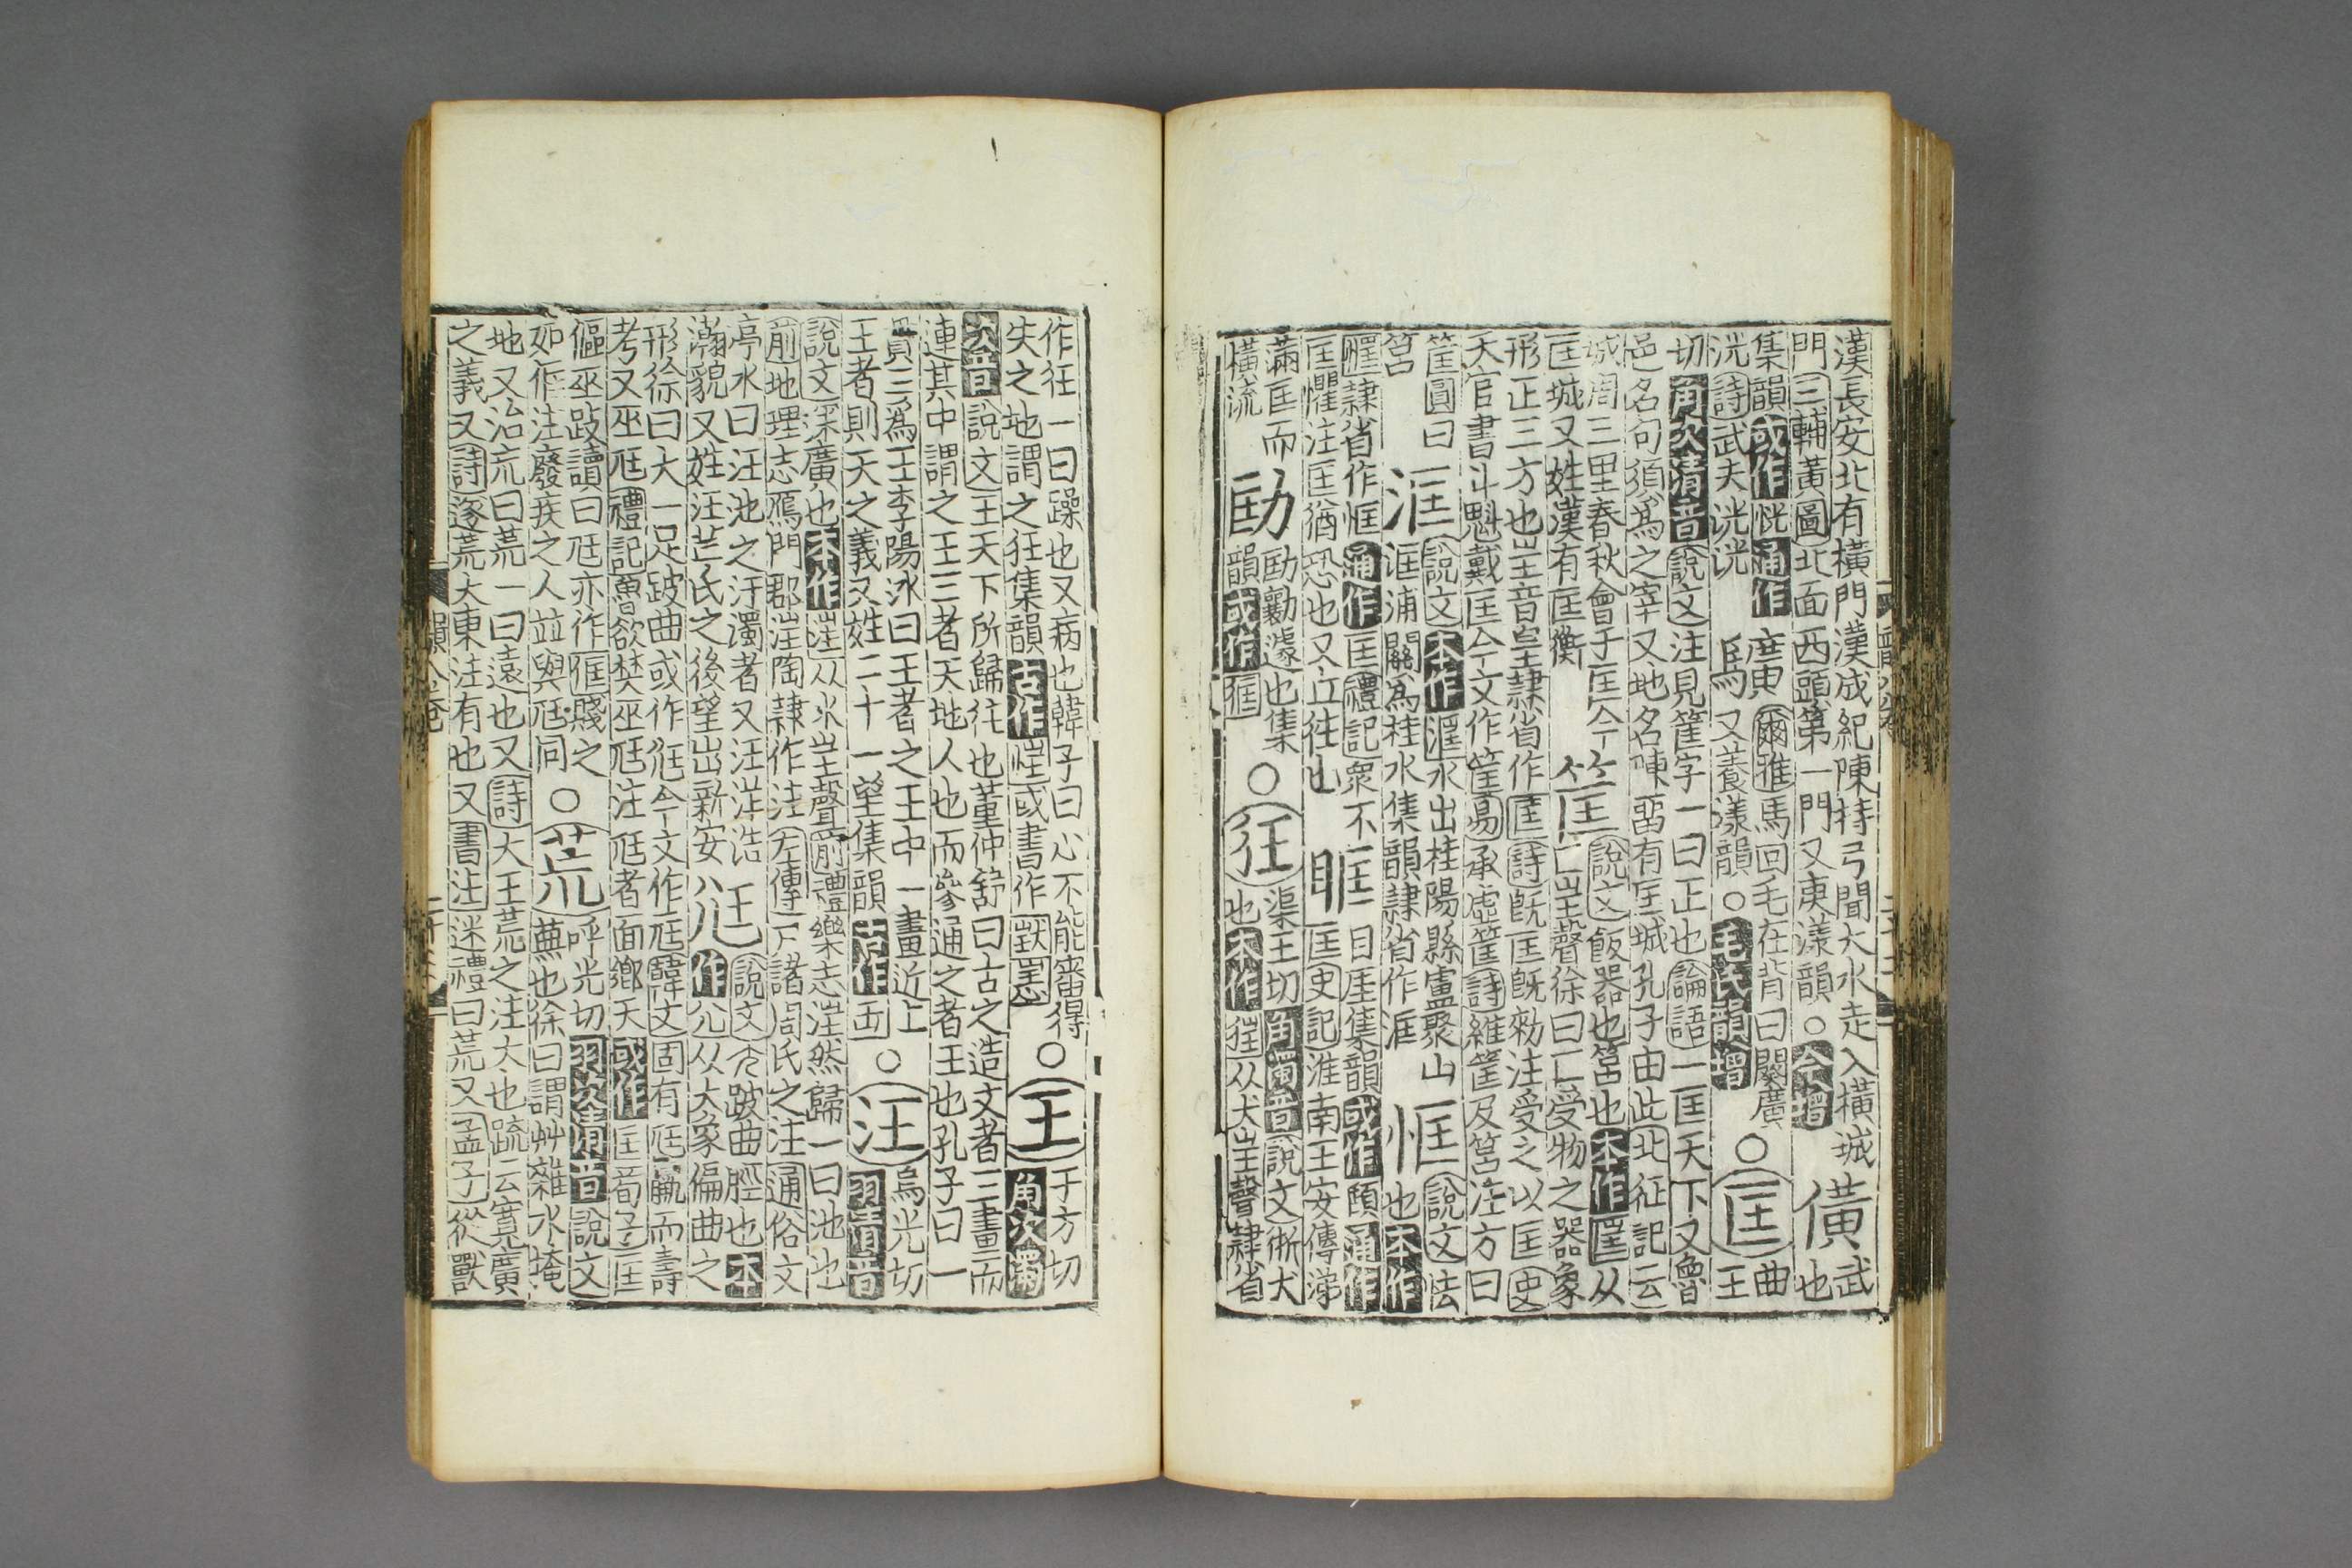 漢長安北有橫門漢成紀陳持弓聞大水走入橫城門三輔黃圖北面西頭第一門又庚漾韻○今增僙武也
集韻或作恍通作洸詩武夫洸洸䮲爾雅馬回毛在背曰闋廣又養漾韻○毛氏韻增○匡曲王
切角次清音說文注見筐字一曰正也論語一匡天下又魯邑名句須為之宰又地名陳留有匡城孔子由此北征記云
城周三里春秋會于匡今匡城又姓漢有匡衡筐說文飯器也筥也本作匩从匚㞷聲徐曰匚受物之器象
形正三方也㞷音皇隷省作匡詩旣匡旣勑注受之以匡史天官書斗魁戴匡今文作筐易承虛筐詩維筐及筥注方曰
筐圓曰筥洭說文本作水出桂陽縣盧聚山洭浦關為桂水集韻隷省作洭恇說文怯也本作
隷省作恇通作匡禮記衆不匡懼注匡猶恐也又立往也眶目厓集韻或作通作匡史記淮南王安傳涕
滿匡而橫流劻劻勷遽也集韻或作○狂渠王切角濁音說文狾犬也本作㹵从犬㞷聲隷省
作狂一曰躁也又病也韓子曰心不能審得失之地謂之狂集韻古作或書作○王于方切角次濁
次音說文王天下所歸往也董仲舒曰古之造文者三畫而連其中謂之王三者天地人也而參通之者王也孔子曰一
貫三為王李陽冰曰王者之王中一畫近上王者則天之義又姓二十一望集韻古作○汪烏光切羽清音
說文深廣也本作㴏从水㞷聲前禮樂志㴏然歸一曰池也前地理志鴈門郡㴏陶隷作汪左傳尸諸周氏之汪通俗文
亭水曰汪池之汙濁者又汪洋浩瀚貌又姓汪芒氏之後望出新安尪說文跛曲脛也本作尣从大象偏曲之
形徐曰大一足跛曲或作尫今文作尪韓文固有尪羸而壽考又巫尪禮記魯欲焚巫尪注尪者面鄉天或作匡荀子匡
傴巫跂讀曰尪亦作賤之如注廢疾之人並與尪同○荒呼光切羽次清音說文蕪也徐曰謂艸雜水埯
地又治㡃曰荒一曰遠也又詩大王荒之注大也疏云寬廣之義又詩遂荒大東注有也又書注迷禮曰荒又孟子從獸